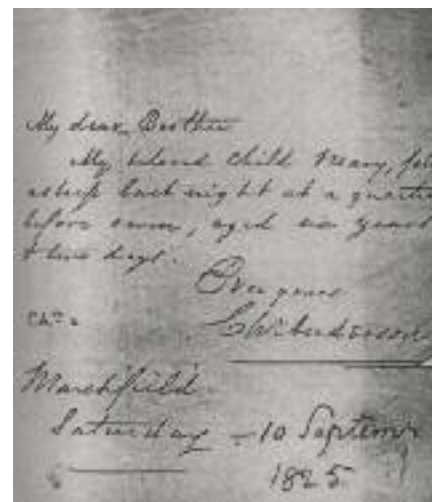 My dear Brother
My beloved child Mary, fell
asleep last night at a quarter
before seven, aged six years
& two days.
Ever yours
Marshfield.
Saturday - 10 Septemr
1825